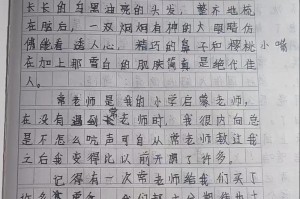 长长的乌黑油亮的头发，整齐地梳
在脑后，一双炯炯有神的大眼睛仿
佛能看透人心，精巧的鼻子和樱桃小嘴
在加上那雪白的肌肤简直是绝代佳
人。
常老师是我的小学启蒙老师，
在没有遇到常老师时，我很内向总
是不怎么吭声可自从常老师教过我
之后我变得比以前开朗了许多。
记得有一次常老师给我们买了
许多